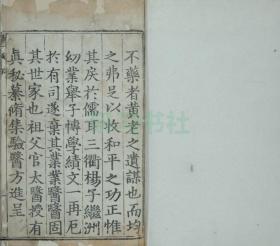 不藥者黃老之遺謀也而均
之弗足以收和平之功正惟
其戾於儒耳三衢楊子繼洲
幼業舉子博學績文一再厄
於有司遂棄其業業醫醫固
其世家也祖父官太醫授有
真秘纂脩集驗醫方進呈